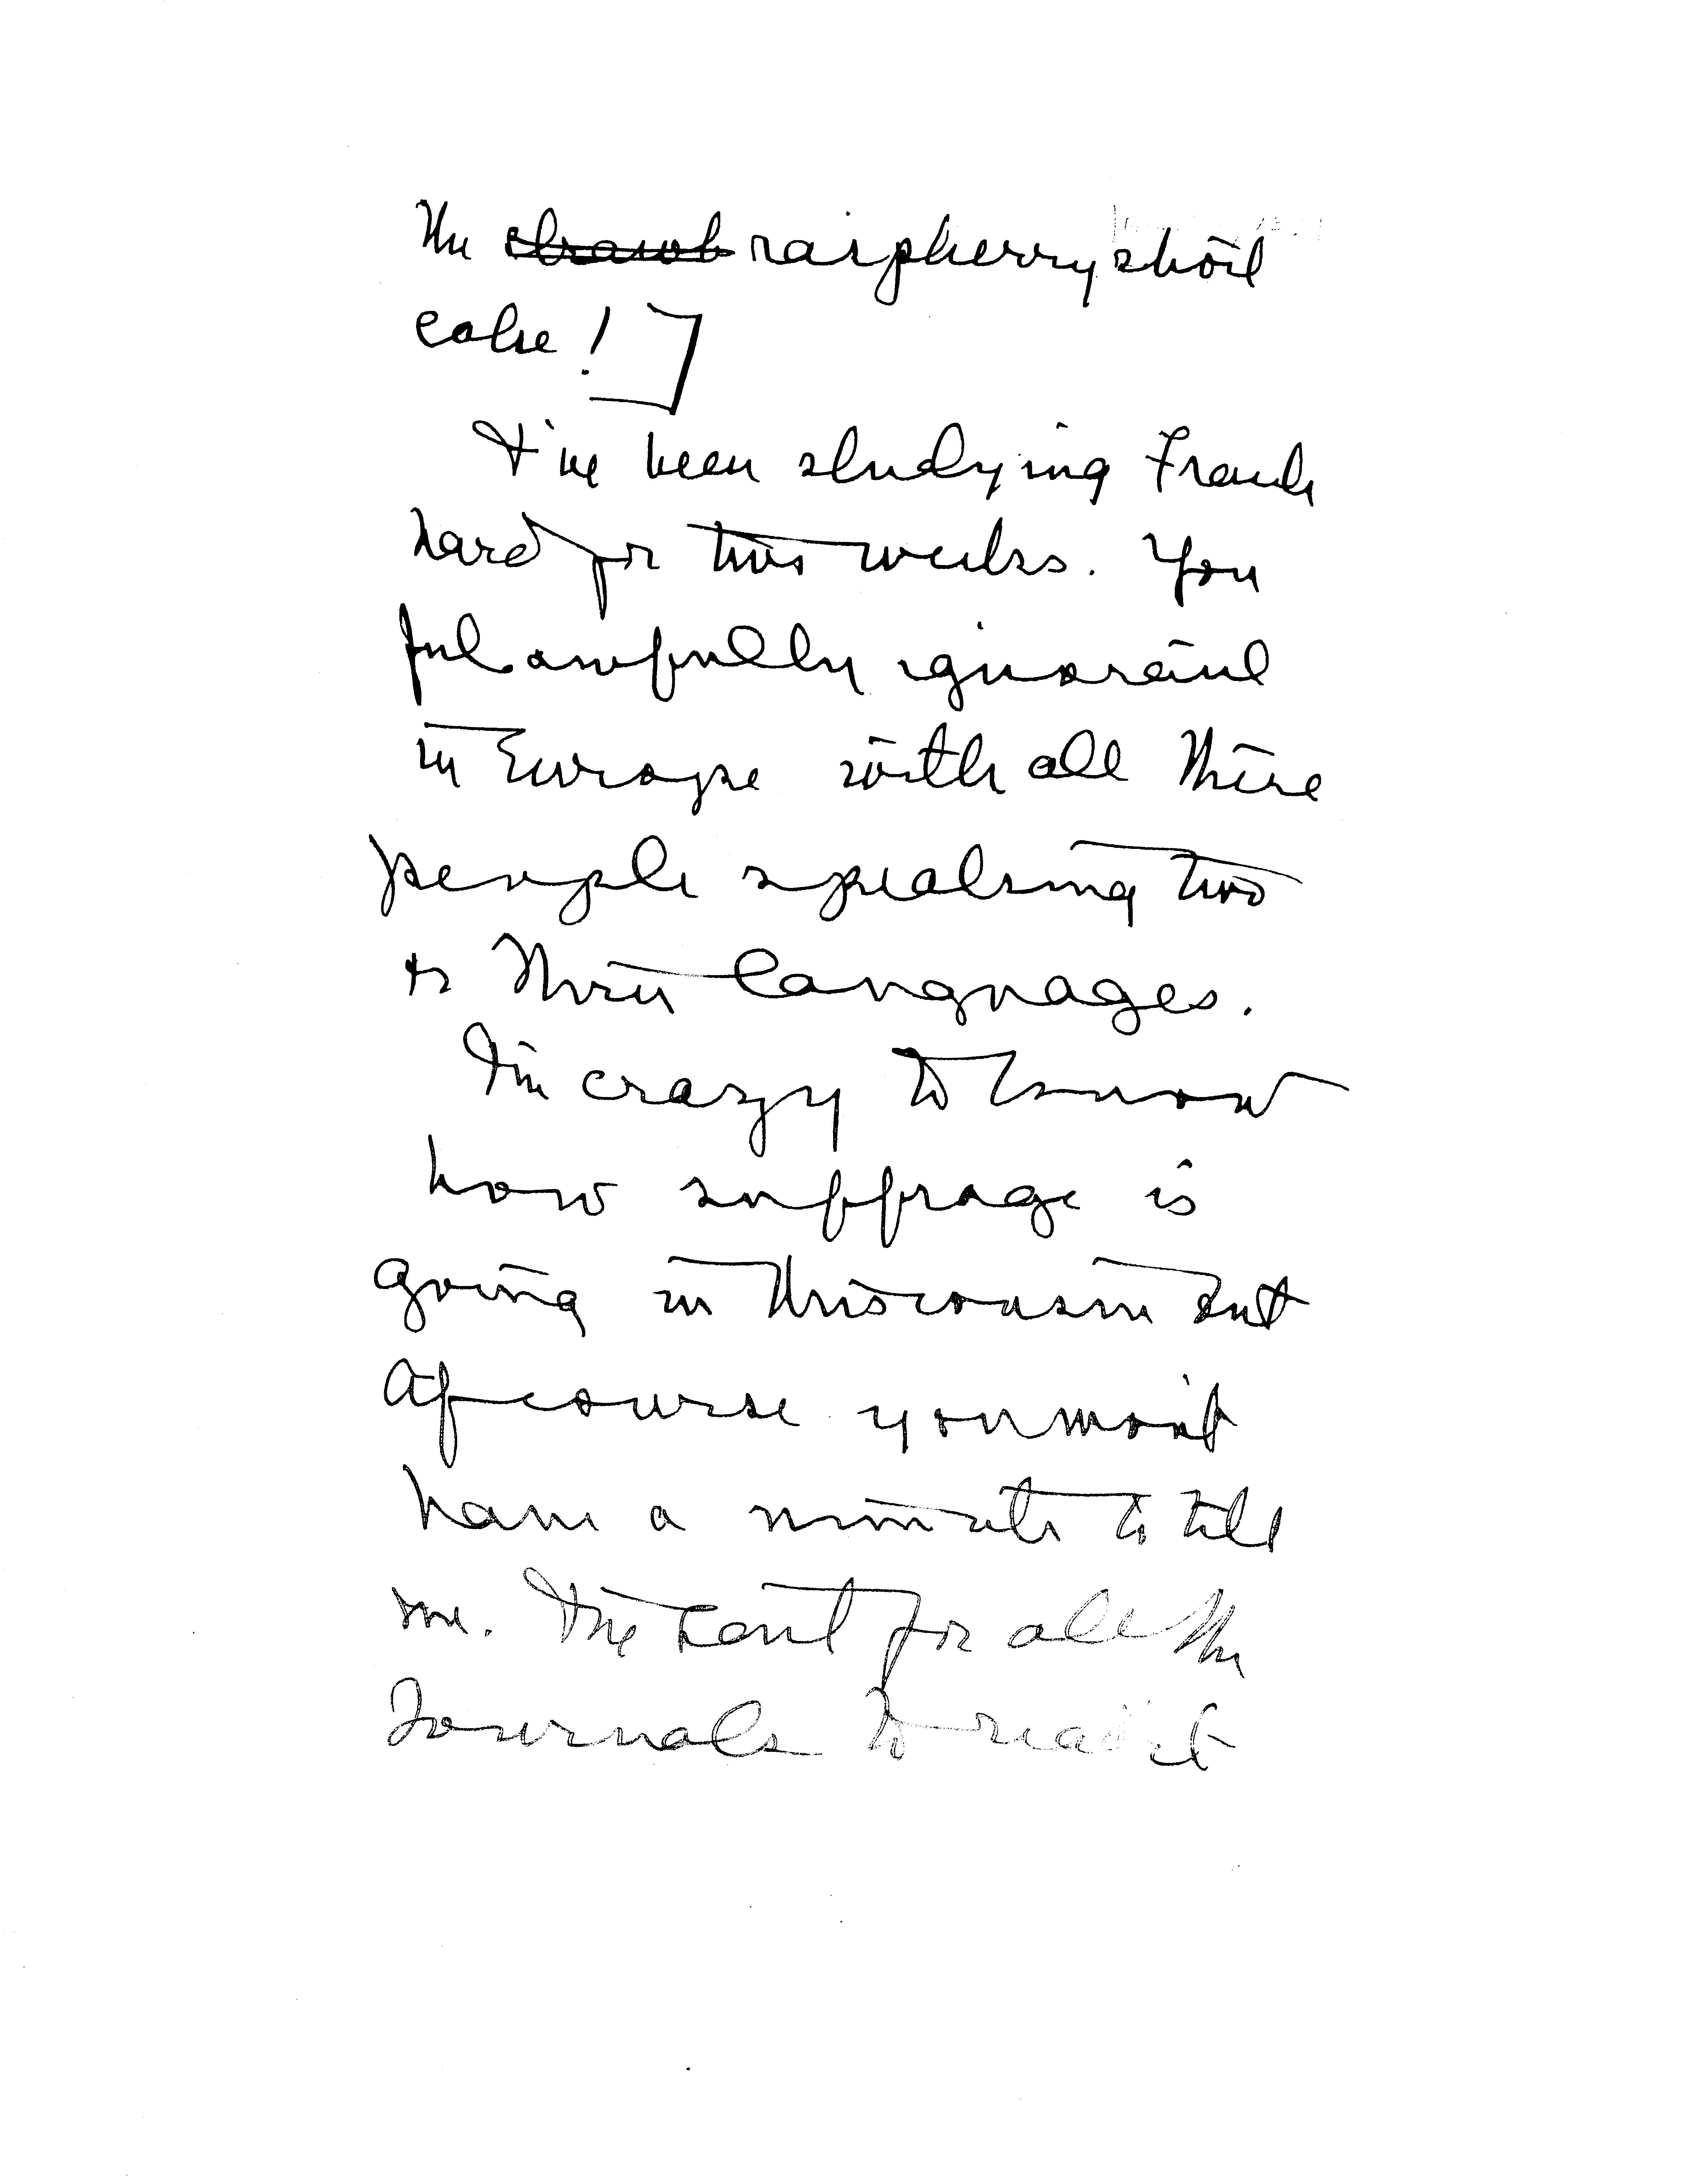 the strawb raspberry short
cake!]
I've been studying French
hard for two weeks. You
feel awfully ignorant
in Europe with all these
people speaking two
or three languages.
I'm crazy to know
how suffrage is
going in Wisconsin but
of course you won't
have a minute to tell
me. I've sent for all the
Journals to read it